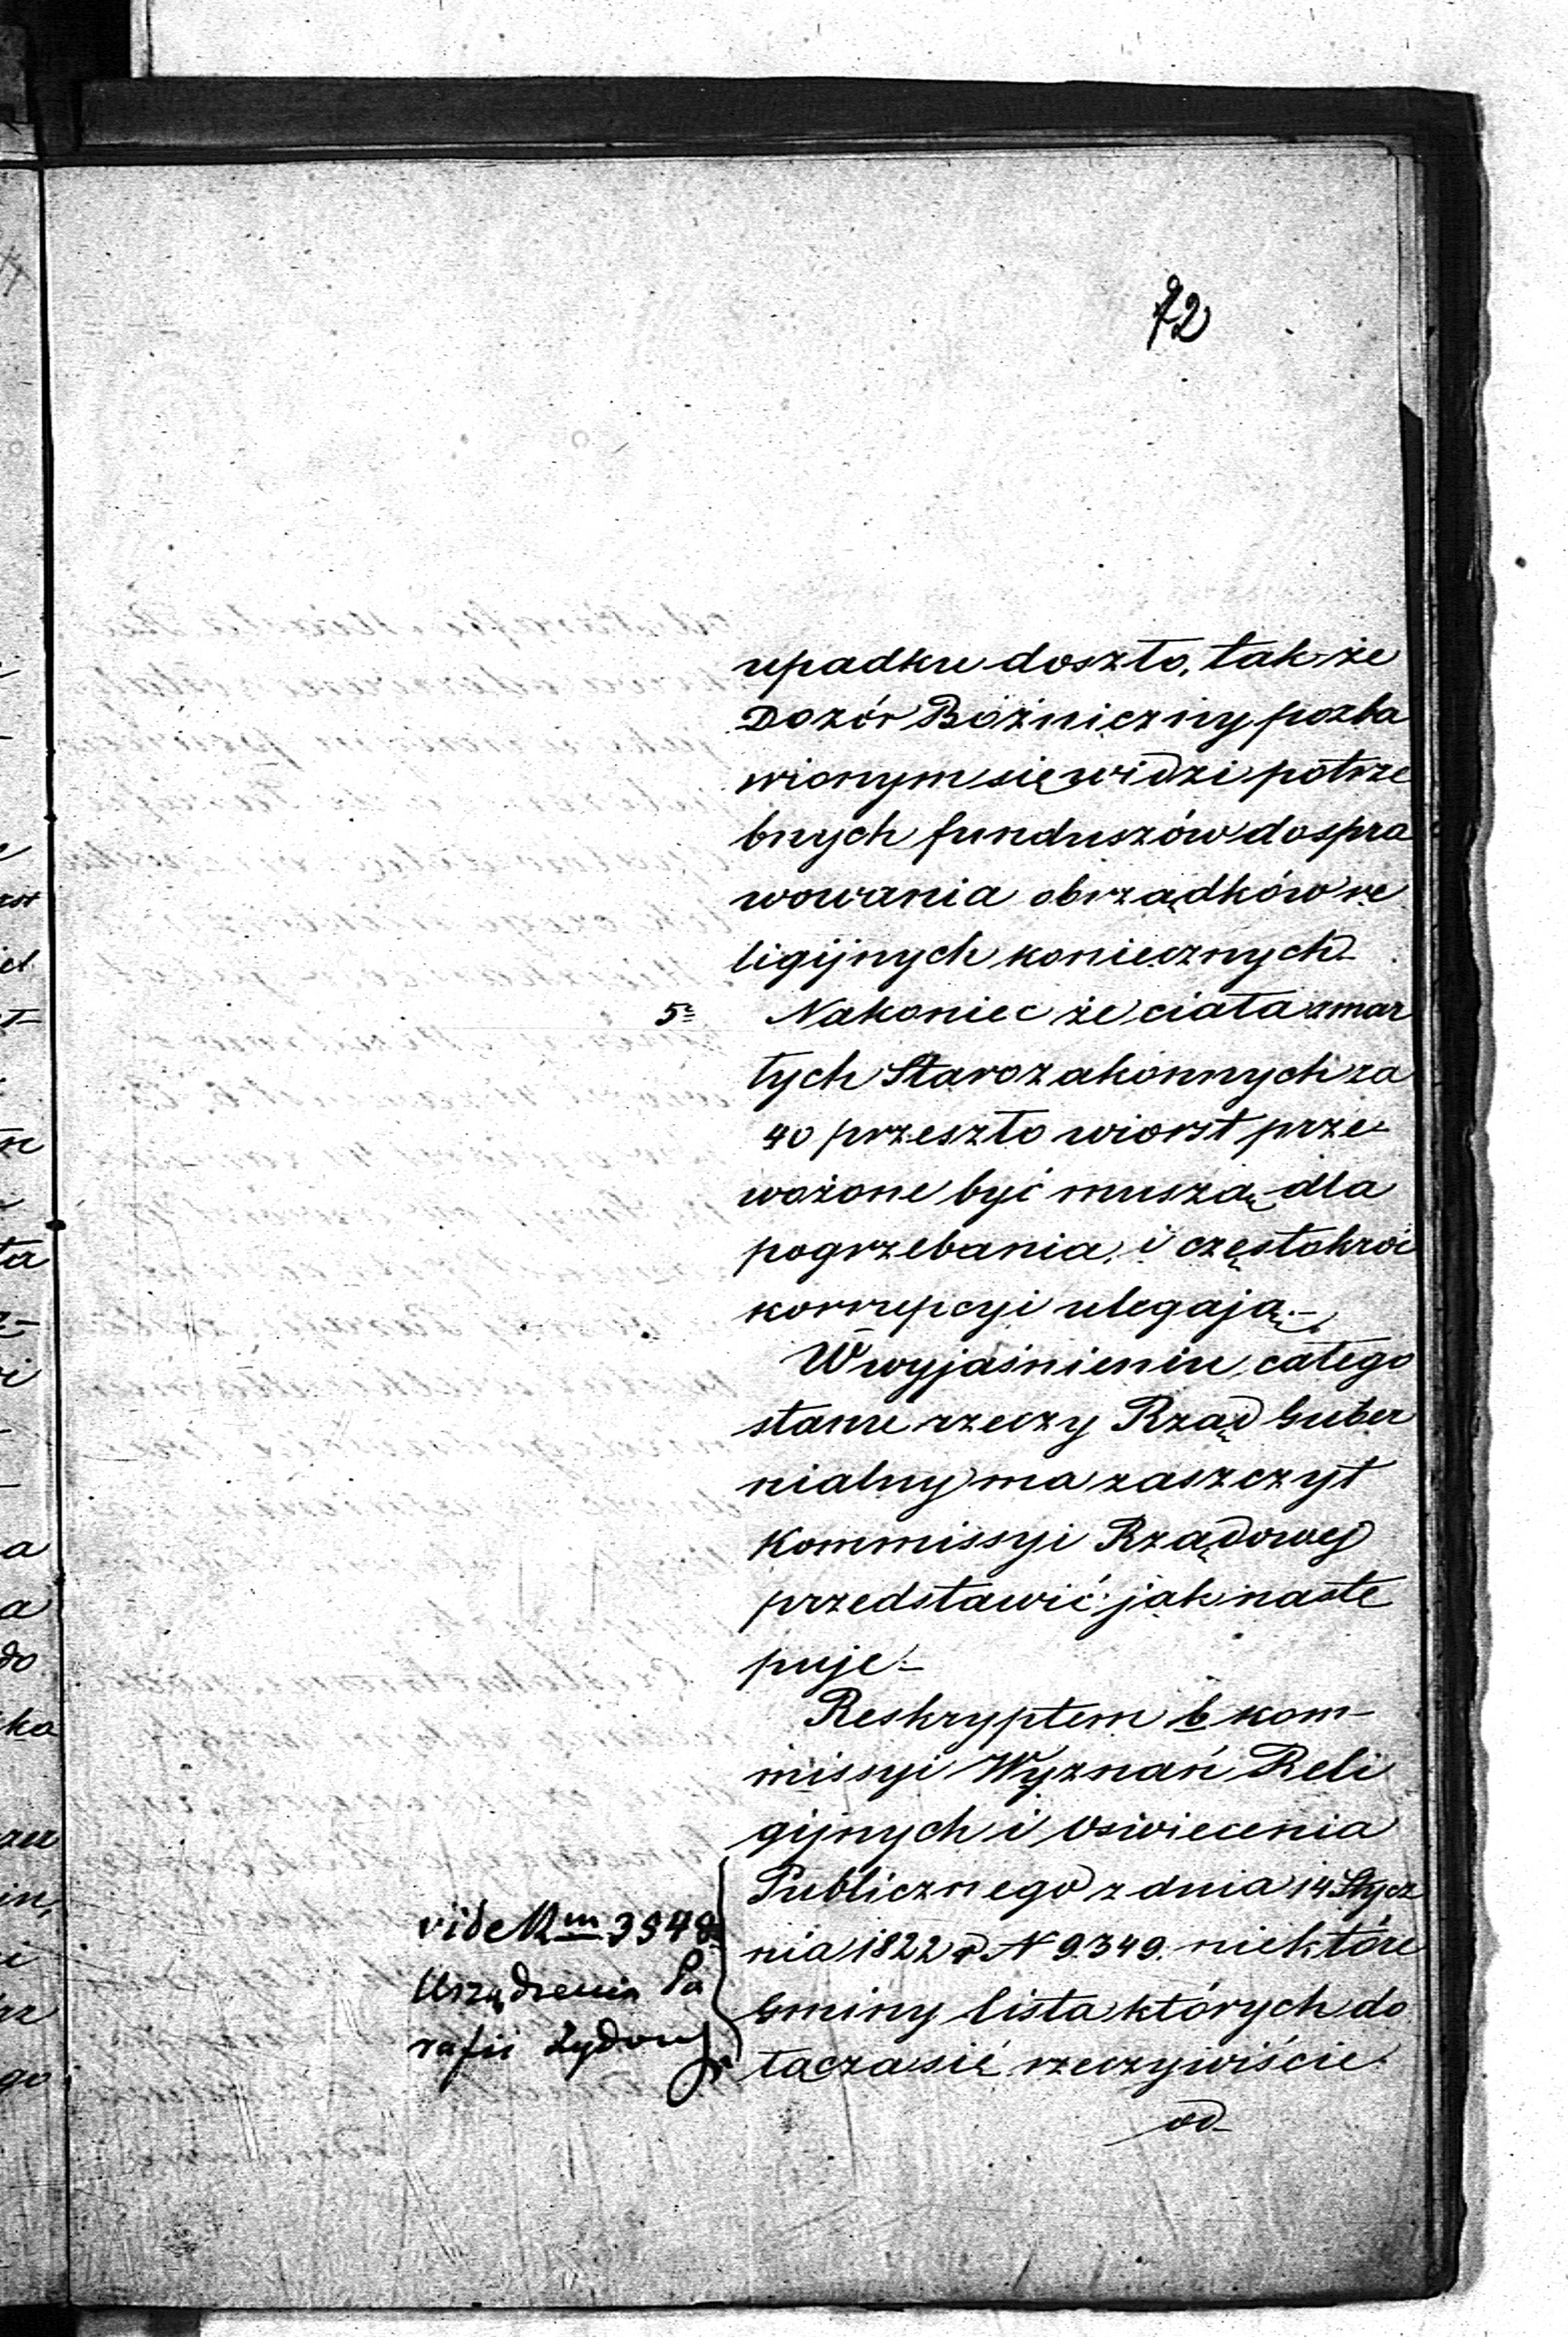 72
upadku doszło, tak że
Dozór Bóżniczny pozba
wionym się widzi potrze
bnych funduszów do spra
wowania obrządków re
ligijnych koniecznych
5e Nakoniec że ciała zmar
łych Starozakonnych za
40 przeszło wiorst prze-
wożone być muszą dla
pogrzebania, i częstokroć
korrupcyi ulegają.—
W wyjaśnieniu całego
stanu rzeczy Rząd Guber
nialny ma zaszczyt
Kommissyi Rządowej
przedstawić jak nastę
puje—
Reskryptem b kom-
missyi Wyznań Reli
gijnych i Oświecenia
Publicznego z dnia 14 Stycz
nia 1822 r N 9349. niektóre
Gminy lista których do
łącza się rzeczywiście
od
vide
Urządzenia Pa
rafii Żydow